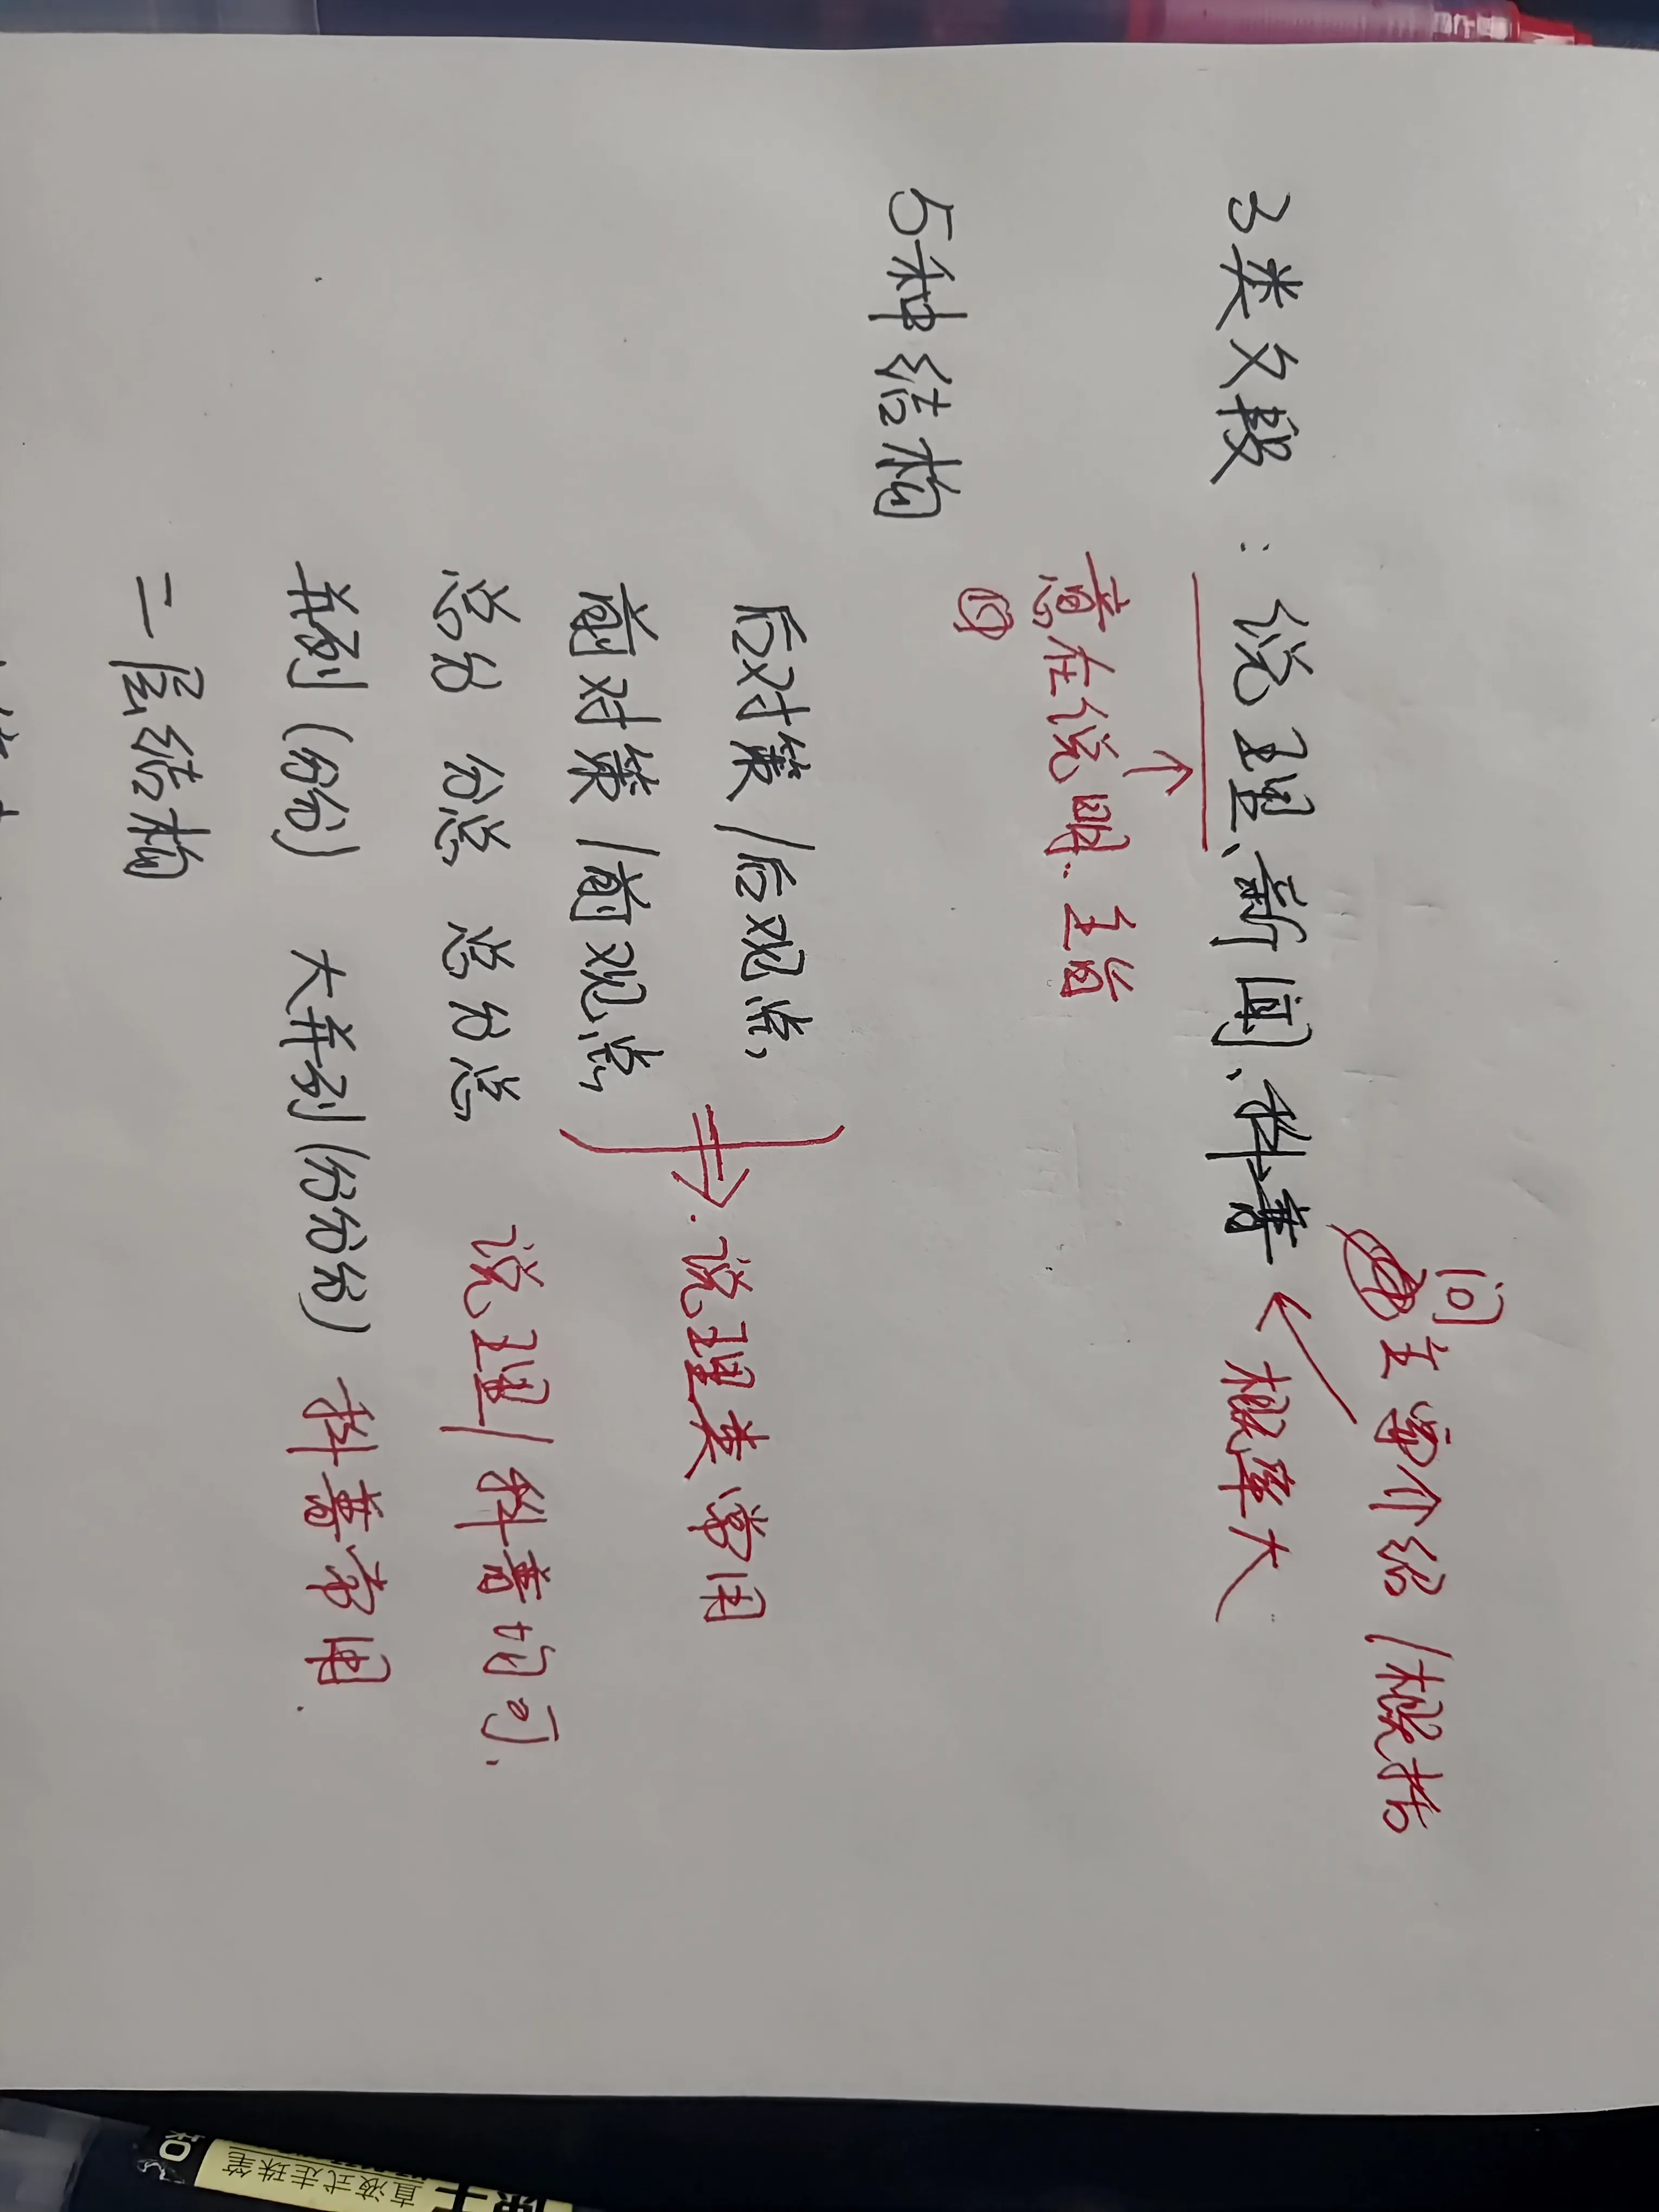 问主要介绍/概括
3类文段:说理、新闻、科普 概率大
意在说明、主旨
问
5种结构
后对策/后观点
前对策/前观点 说理类常用
总分 分总 总分总 说理/科普均可.
并列(分分) 大并列(分分分) 科普常用.
二层结构
直液式走珠笔